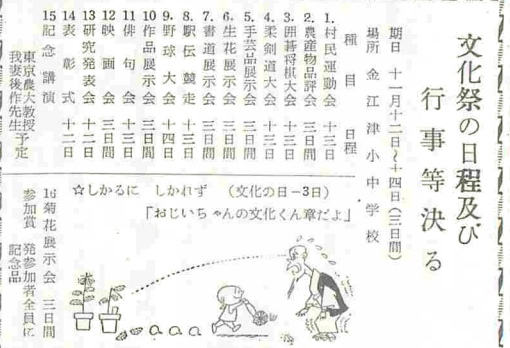 文化祭の日程及び
行事等決る
期日 十一月十二日～十四日(三日間)
場所 金江津小中学校
種目 日程
1.村民運動会 十三日
2.農産物品評会 三日間
3.囲碁将棋大会 十三日
4.柔剣道大会 十三日
5.手芸品展示会 三日間
6.生花展示会 三日間
7.書道展示会 三日間
8.駅伝競走 十三日
9.野球大会 十四日
10作品展示会 三日間
11俳句会 十三日
12映画会 三日間
13研究発表会 十二日
14表彰式 十二日
15記念講演
東京農大教授
我妻後作先生予定
16菊花展示会 三日間
参加賞 発参加者全員に
記念品
☆しかるに しかれず (文化の日―3日)
「おじいちゃんの文化くん章だよ」